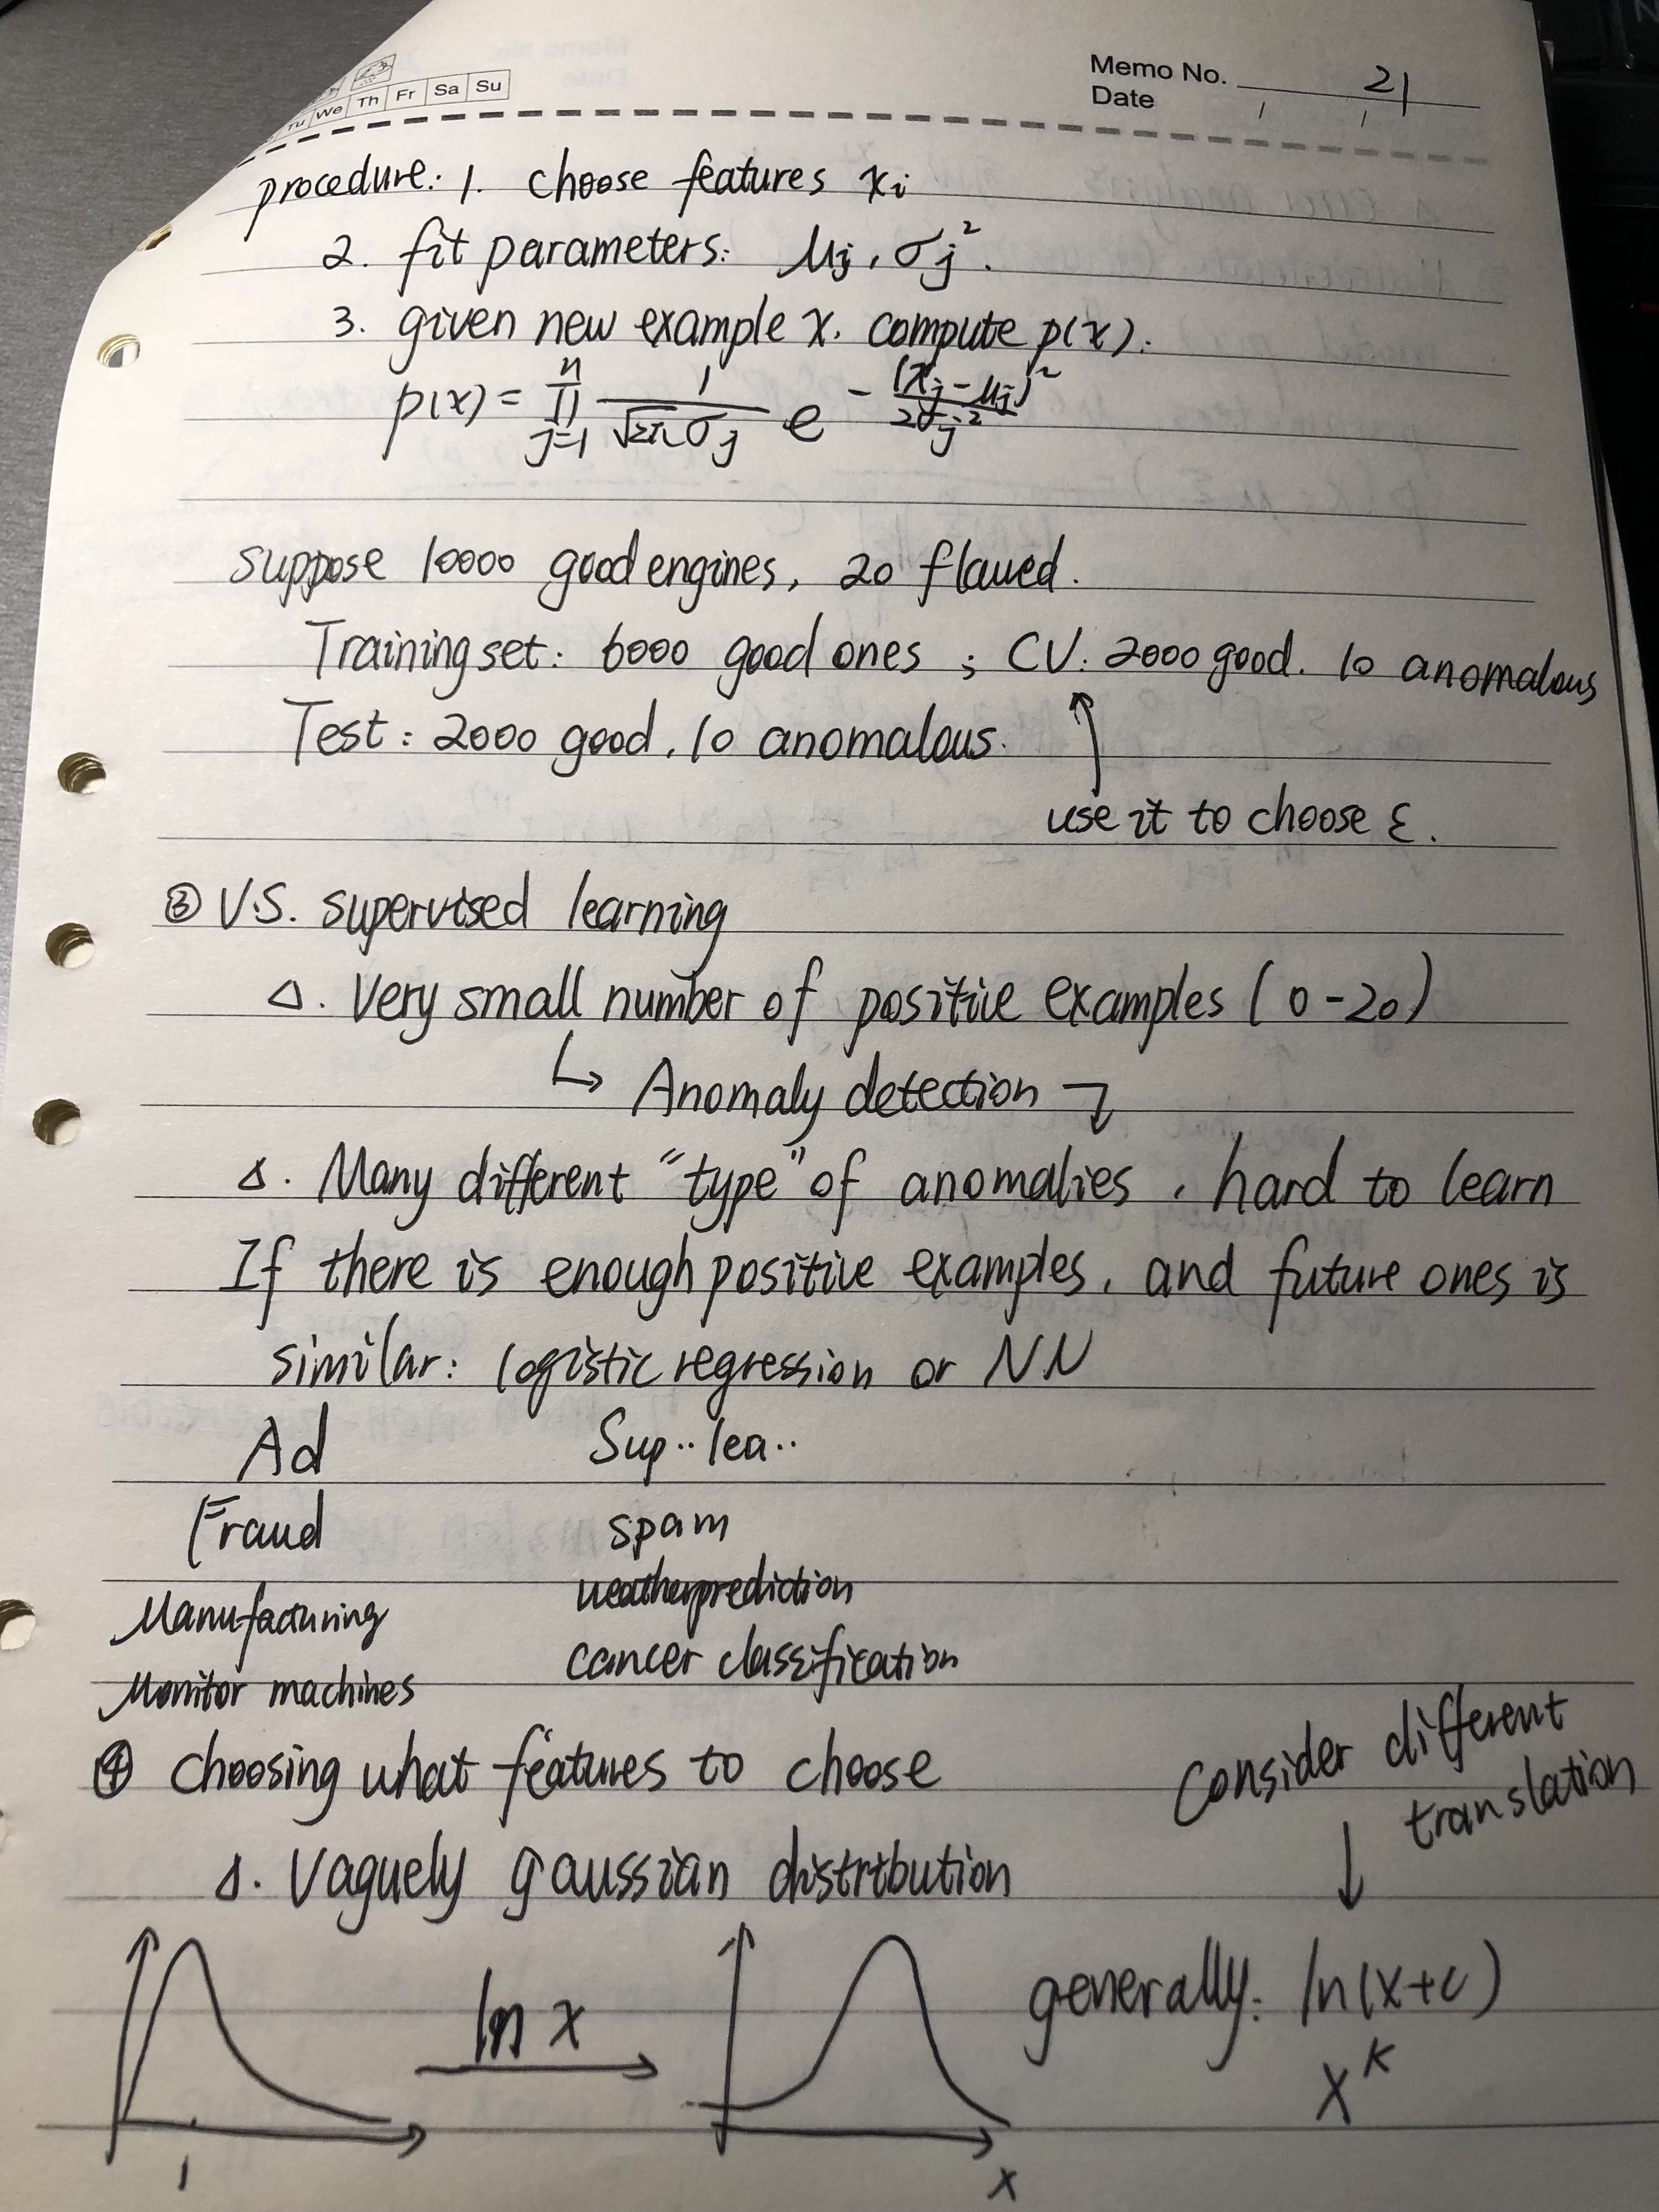 Tu We Th Fr Sa Su
Memo No. 21
Date / /
procedure: 1. choose features xi
2. fit parameters: μj, σj².
3. given new example x. compute p(x):
p(x) = ∏_{j=1}^{n} 1/(√2π σj) e^{-(xj-μj)²/(2σj²)}
suppose 10000 good engines, 20 flawed.
Training set: 6000 good ones ; CV: 2000 good. 10 anomalous
Test: 2000 good, 10 anomalous.
↑
use it to choose ε.
③ V.S. supervised learning
△. Very small number of positive examples (0-20)
↳ Anomaly detection ↴
△. Many different "type" of anomalies, hard to learn
If there is enough positive examples, and future ones is
similar: logistic regression or NN
Ad Sup.. lea..
Fraud spam
Manufacturing weatherprediction
Monitor machines cancer classification
④ choosing what features to choose
Consider different
translation
↓
△. Vaguely gaussian distribution
ln x → generally: ln(x+c)
x^k
1 x